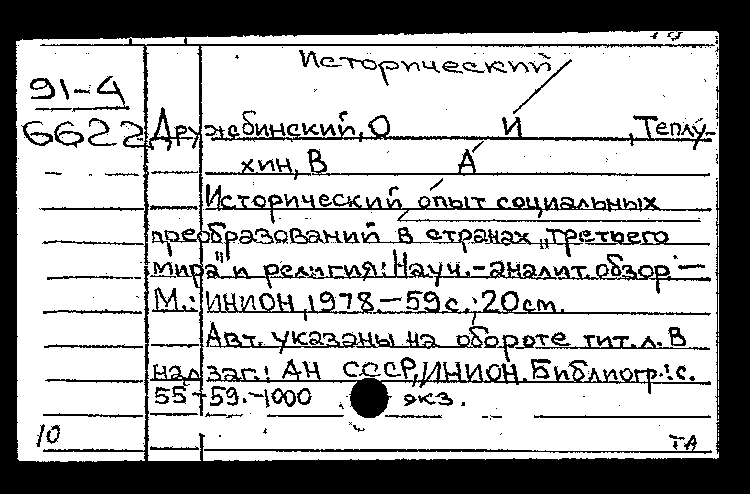 Исторический
91-4
6622
Дружбинский, О И , Теплу-
хин, В А
Исторический опыт социальных
преобразований в странах „третьего
мира" и религия: Науч.-аналит. обзор —
М.: ИНИОН, 1978.—59с.; 20см.
Авт. указаны на обороте тит.л. В
надзаг.: АН СССР, ИНИОН. Библиогр.: с.
55-59.-1000 экз.
10
ТА